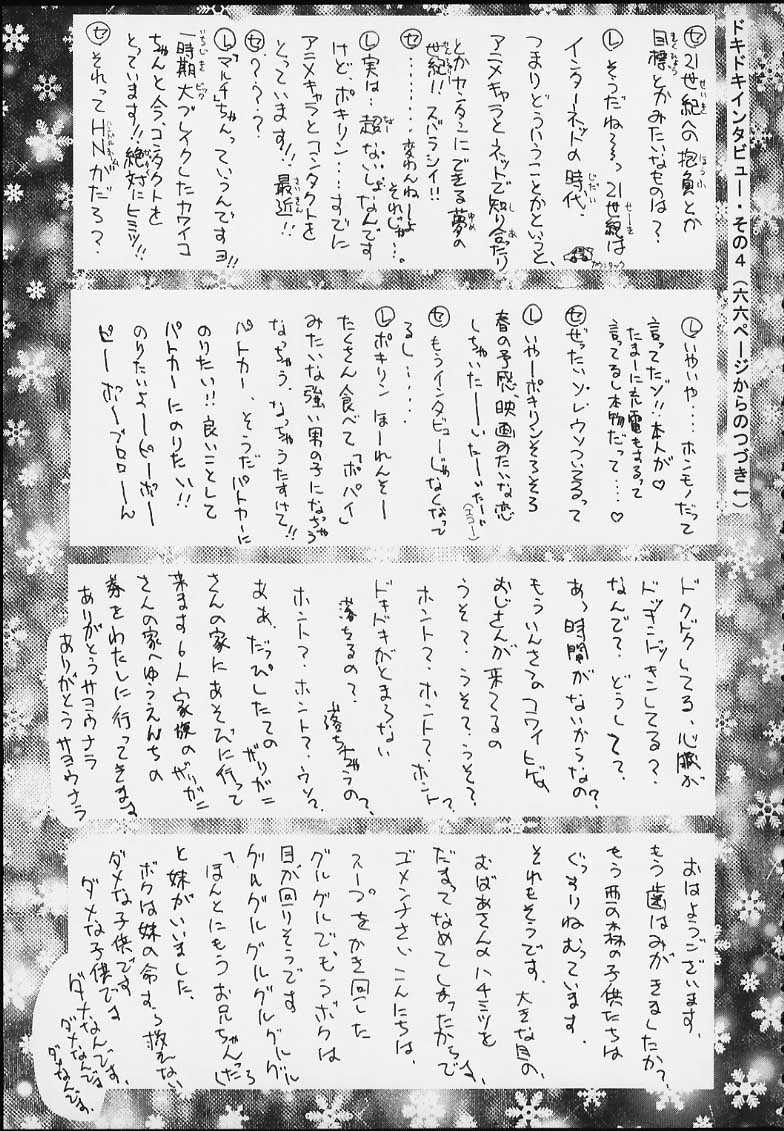 ドキドキインタビュー・その4(六六ページからのつづき←)
セ 21世紀への抱負とか
目標とかみたいなものは?
L そうだね〜〜っ21世紀は
インターネットの時代、
つまりどういうことかというと、
アニメキャラとネットで知り合ったり
とかカンタンにできる夢の
世紀!!ズバラシイ!!
セ ........変わんねーよ
それじゃ…。
L 実は…超ないしょなんです
けど、ポキリン...すでに
アニメキャラとコンタクトを
とっています!!最近!!
セ ????
L 「マルチ」ちゃんっていうんですョ!!
一時期大ブレイクしたカワイコ
ちゃんと今、コンタクトを
とっています!!絶対にヒミツ!!
セ それってHNがだろ?
L いやいや....ホンモノだって
言ってたゾ!!本人が♡
たまーに充電もするって
言ってるし本物だって....♡
セ ぜったいソレウソついてるって
L いやーポキリンそろそろ
春の予感、映画みたいな恋
しちゃいたーーいたーいたーい
(エコー)
セ もうインタビューじゃなくなって
るし.....
L ポキリンほーれんそー
たくさん食べて「ポパイ」
みたいな強い男の子になっちゃう
なっちゃう、なっちゃうたすけて!!
パトカー、そうだパトカーに
のりたい!!良いことして
パトカーにのりたい!!
のりたいよーピーポー
ピーポーブロローん
ドクドクしてる、心臓が
ドッキンドッキンしてる?
なんで?どうして?
あっ時間がないからなの?
もういんさつのコワイヒゲ
おじさんが来てるの
うそ?うそ?うそ?
ホント?ホント?ホント?
ドキドキがとまらない
落ちるの?落ちちゃうの?
ホント?ホント?ウソ?
ああ、だっぴしたてのザリガニ
さんの家にあそびに行って
来ます6人家族のザリガニ
さんの家へゆうえんちの
券をわたしに行ってきます
ありがとうサヨウナラ
ありがとうサヨウナラ
おはようございます。
もう歯はみがきましたか?
もう西の森の子供たちは
ぐっすりねむっています。
それもそうです、大きな目の、
おばあさんのハチミツを
だまってなめてしまったからです。
ゴメンナさい、こんにちは、
スープをかき回した
グルグルでもうボクは
目が回りそうです
グルグルグルグルグルグル
「ほんとにもうお兄ちゃんったら」
と妹がいいました、
ボクは妹の命すら救えない
ダメな子供です
ダメな子供です
ダメなんです、
ダメなんです
ダメなんです、